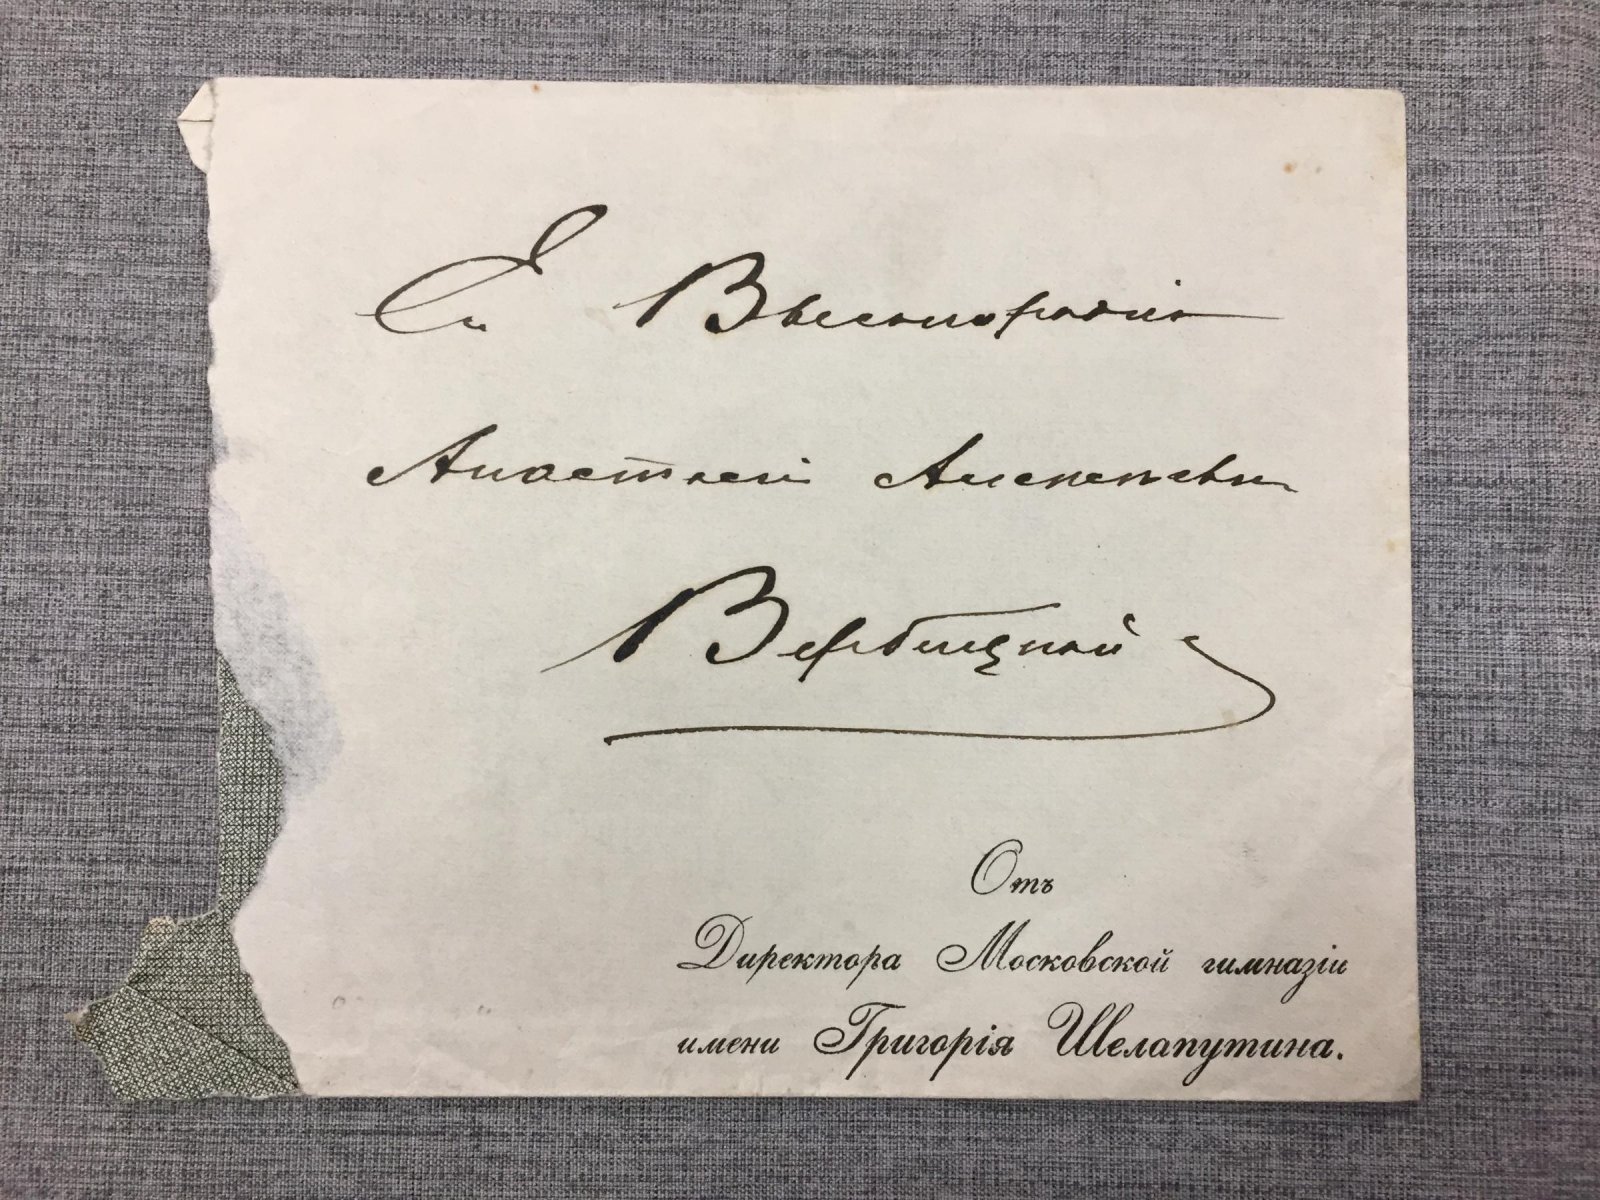 Ея Высокородію
Анастасіи Алексеевнѣ
Вербицкой
Отъ
Директора Московской гимназіи
имени Григорія Шелапутина.